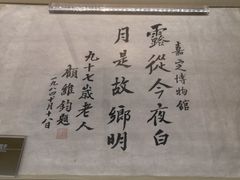 嘉定博物館
露從今夜白
月是故鄉明
九十七歲老人
顧維鈞題
一九八四年十月十八日